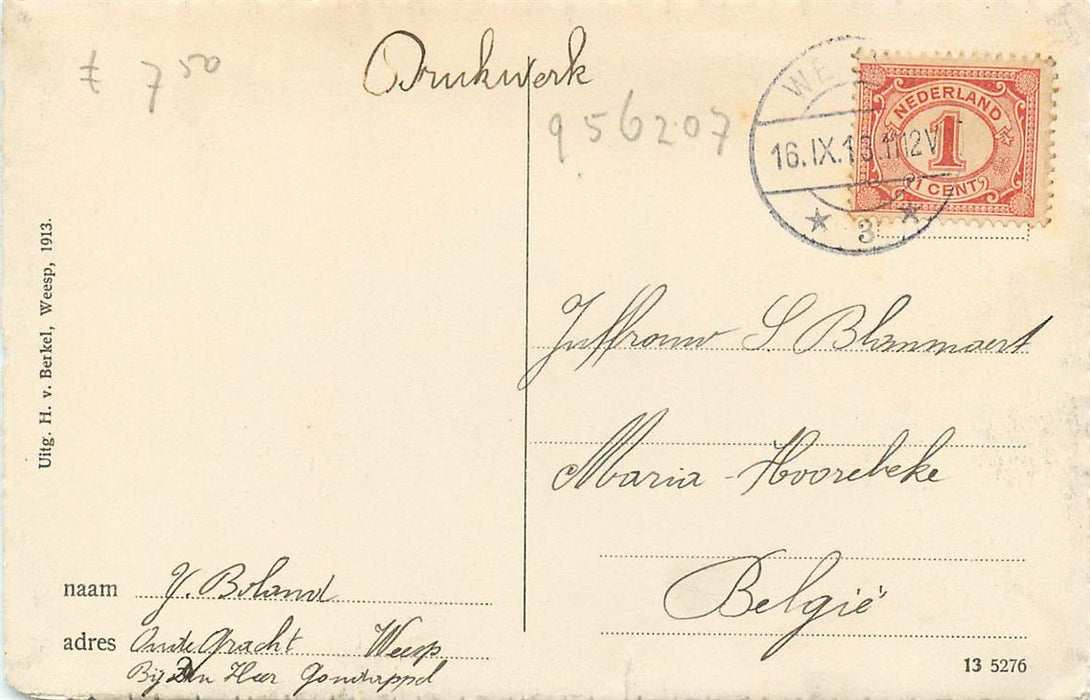 Drukwerk
7 50
956207
WE
16.IX.13.11-12V
3
NEDERLAND
1
1 CENT
Uitg. H. v. Berkel, Weesp, 1913.
Juffrouw S Blammaert
Maria - Hoorebeke
België
naam J. Boland
adres Oude Gracht Weesp
Bij Den Heer
13 5276